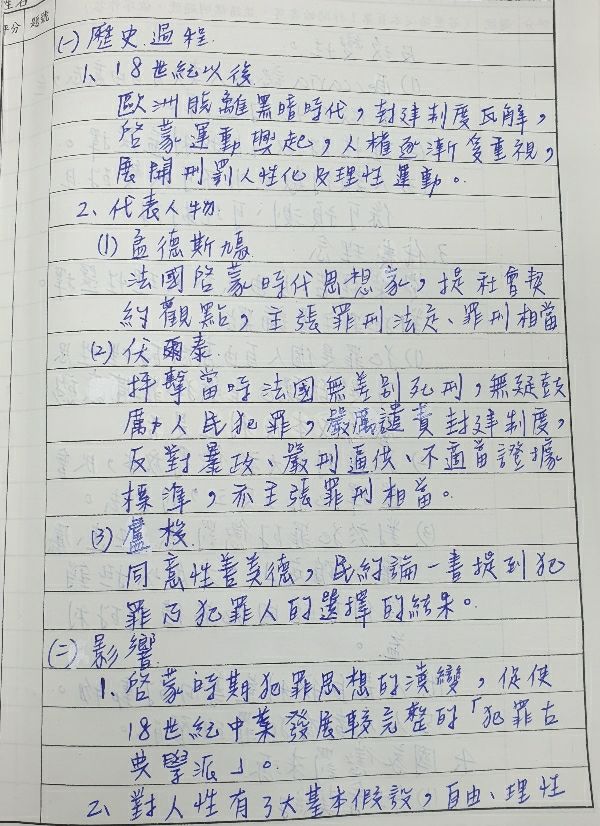 姓名
評分
題號
(一) 歷史過程
1、18世紀以後
歐洲脫離黑暗時代，封建制度瓦解，
啓蒙運動興起，人權逐漸受重視，
展開刑罰人性化及理性運動。
2、代表人物
(1) 孟德斯鳩
法國啓蒙時代思想家，提社會契
約觀點，主張罪刑法定、罪刑相當
(2) 伏爾泰
抨擊當時法國無差別死刑，無疑鼓
厲力人民犯罪，嚴厲譴責封建制度，
反對暴政、嚴刑逼供、不適當證據
標準，亦主張罪刑相當。
(3) 盧梭
同意性善美德，民約論一書提到犯
罪乃犯罪人的選擇的結果。
(二) 影響
1、啓蒙時期犯罪思想的演變，促使
18世紀中葉發展較完整的「犯罪古
典學派」。
2、對人性有3大基本假設，自由、理性